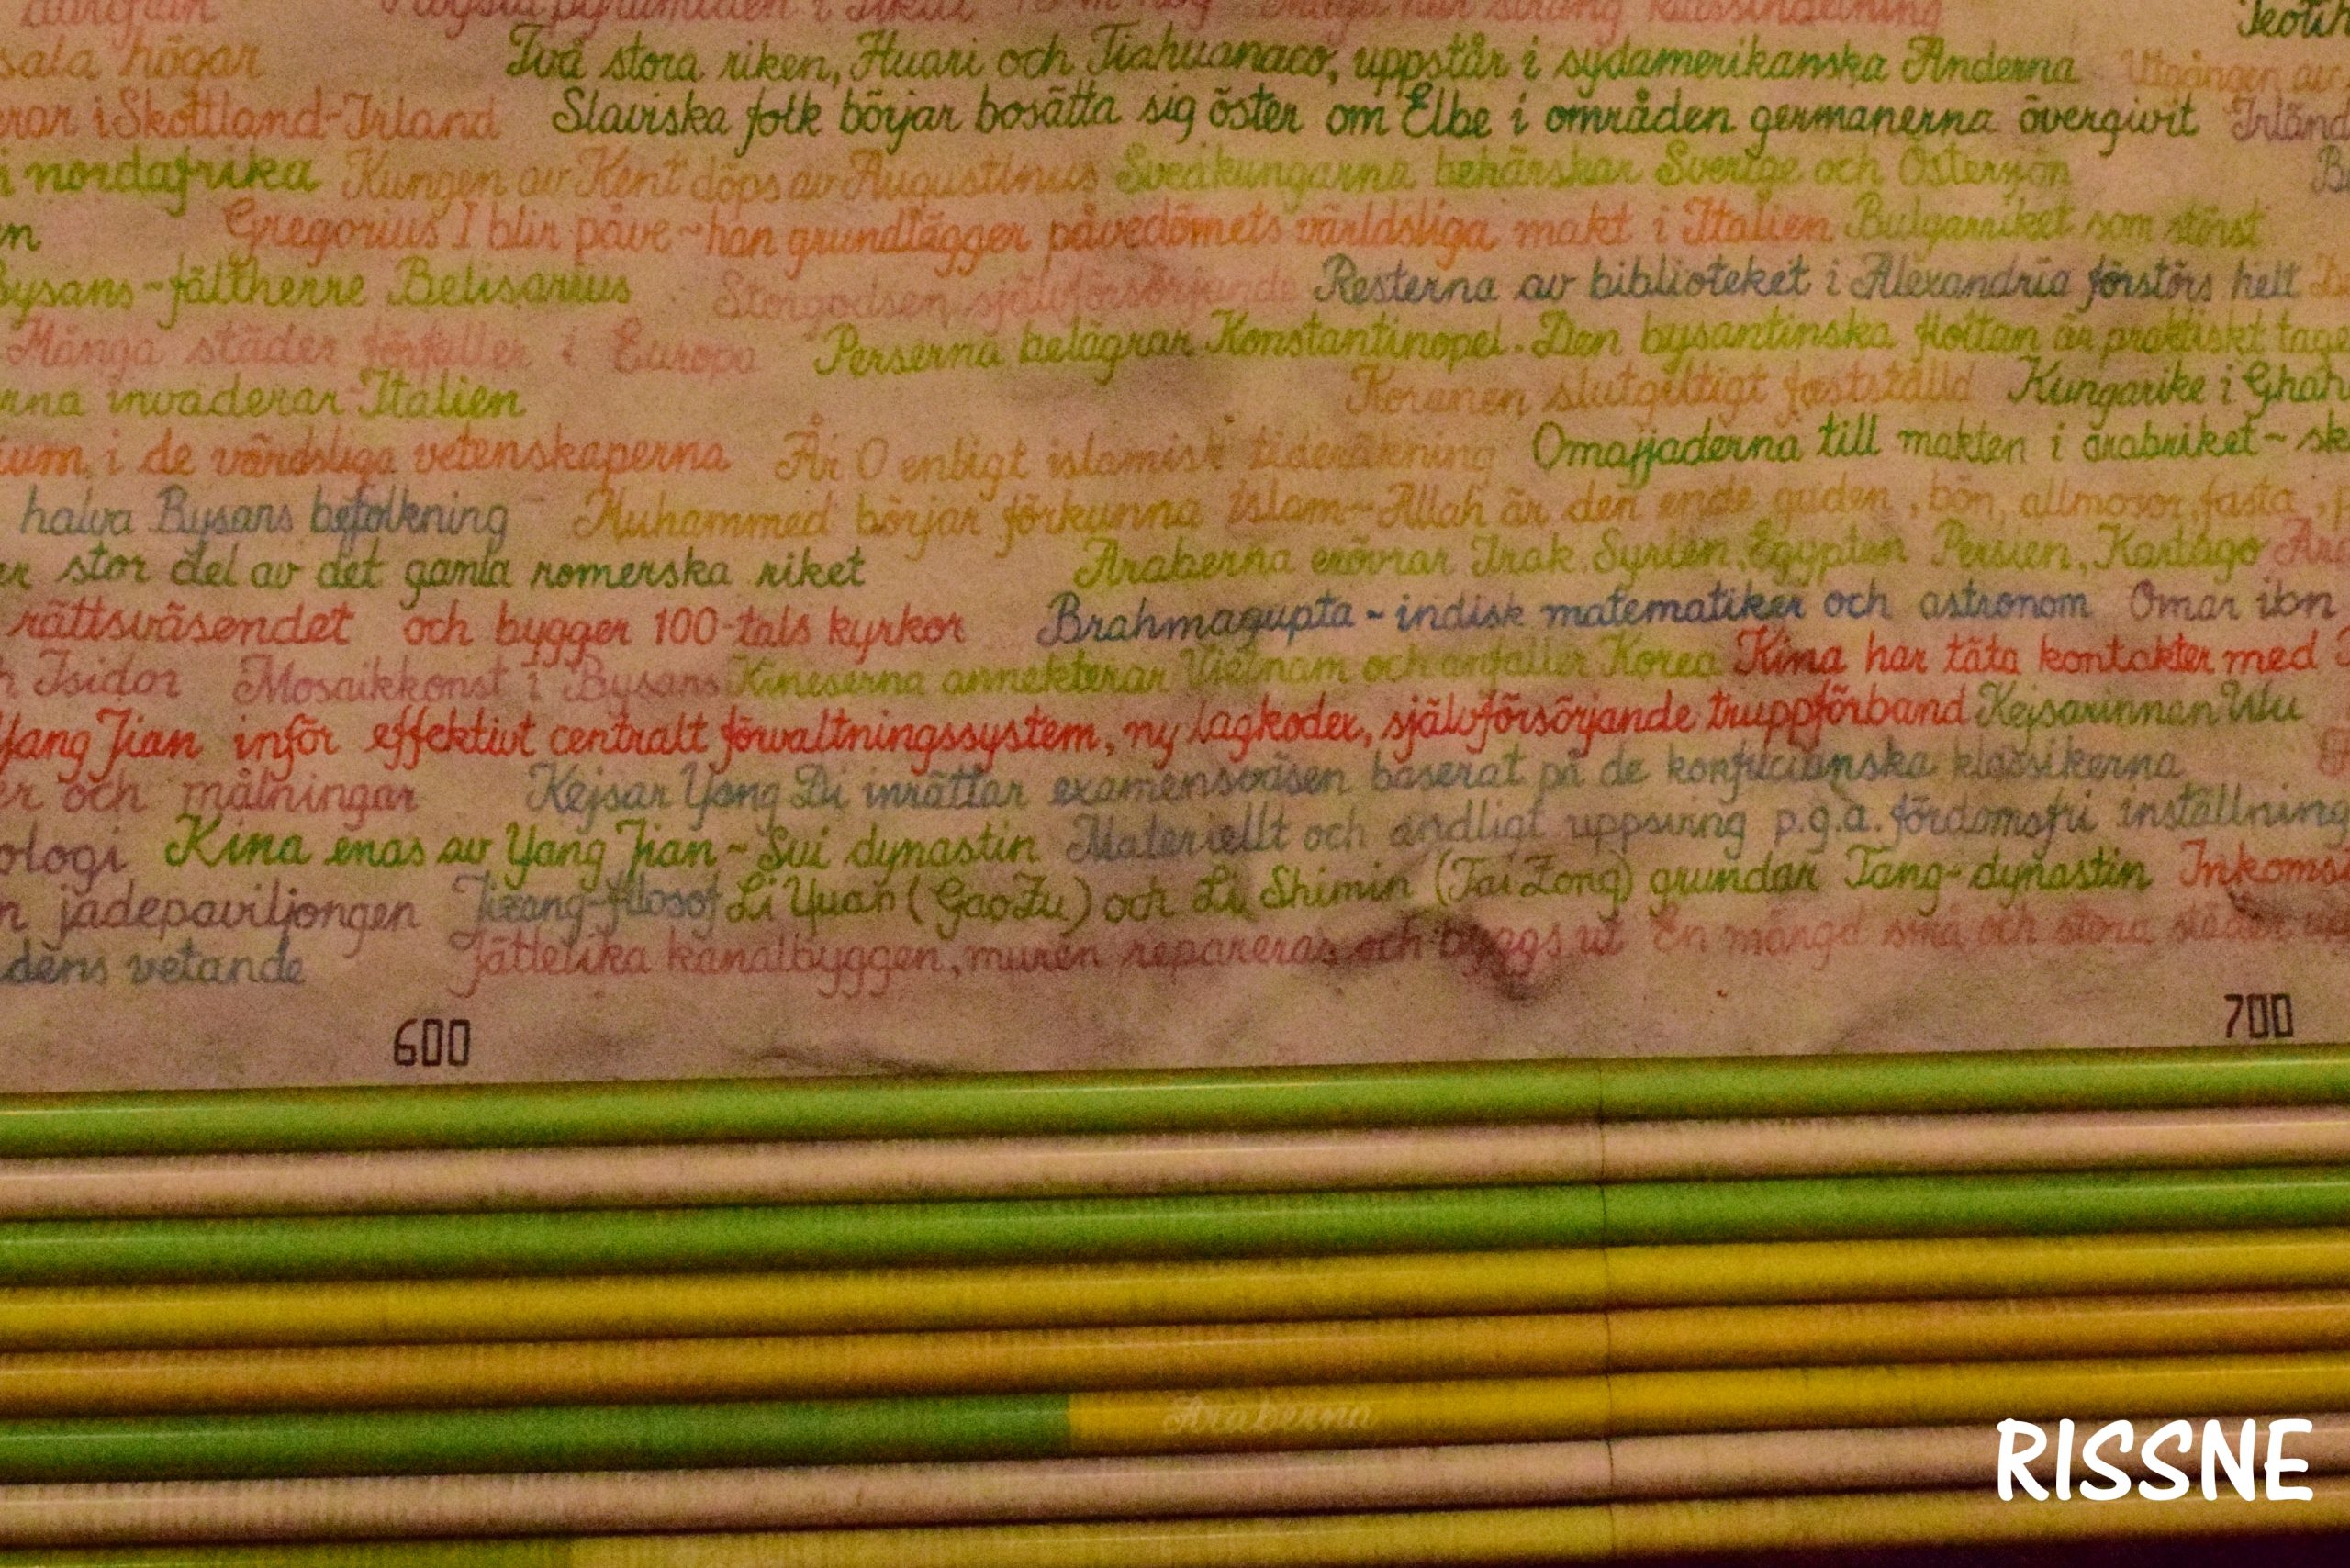 i Tikal har sträng klassindelning
sala högar Två stora riken, Huari och Tiahuanaco, uppstår i sydamerikanska Anderna Utgången av
i Skottland-Irland Slaviska folk börjar bosätta sig öster om Elbe i områden germanerna övergivit
i nordafrika Kungen av Kent döps av Augustinus Sveakungarna behärskar Sverige och Östersjön
Gregorius I blir påve ~ han grundlägger påvedömets världsliga makt i Italien Bulgarriket som störst
Bysans-fältherre Belisarius Storgodsen självförsörjande Resterna av biblioteket i Alexandria förstörs helt
Många städer förfaller i Europa Perserna belägrar Konstantinopel. Den bysantinska flottan är praktiskt
rna invaderar Italien Koranen slutgiltigt fastställd Kungarike i
ium, i de världsliga vetenskaperna År 0 enligt islamisk tideräkning Omajjaderna till makten i arabriket ~
halva Bysans befolkning Muhammed börjar förkunna islam ~ Allah är den ende guden, bön, allmosor, fasta,
er stor del av det gamla romerska riket Araberna erövrar Irak, Syrien, Egypten Persien, Kartago
rättsväsendet och bygger 100-tals kyrkor Brahmagupta - indisk matematiker och astronom Omar ibn
Isidor Mosaikkonst i Bysans Kineserna annekterar Vietnam och anfaller Korea Kina har täta kontakter med
Yang Jian inför effektivt centralt förvaltningssystem, ny lagkoder, självförsörjande truppförband Kejsarinnan Wu
er och målningar Kejsar Yang Di inrättar examensväsen baserat på de konfucianska klassikerna
ologi Kina enas av Yang Jian ~ Sui dynastin Materiellt och andligt uppsving p.g.a. fördomsfri inställning
n jadepaviljongen filosof Li Yuan (Gao Zu) och Li Shimin (Tai Zong) grundar Tang-dynastin
dens vetande Jättelika kanalbyggen, muren repareras och byggs ut En mängd små och stora städer
600 700
Araberna
RISSNE